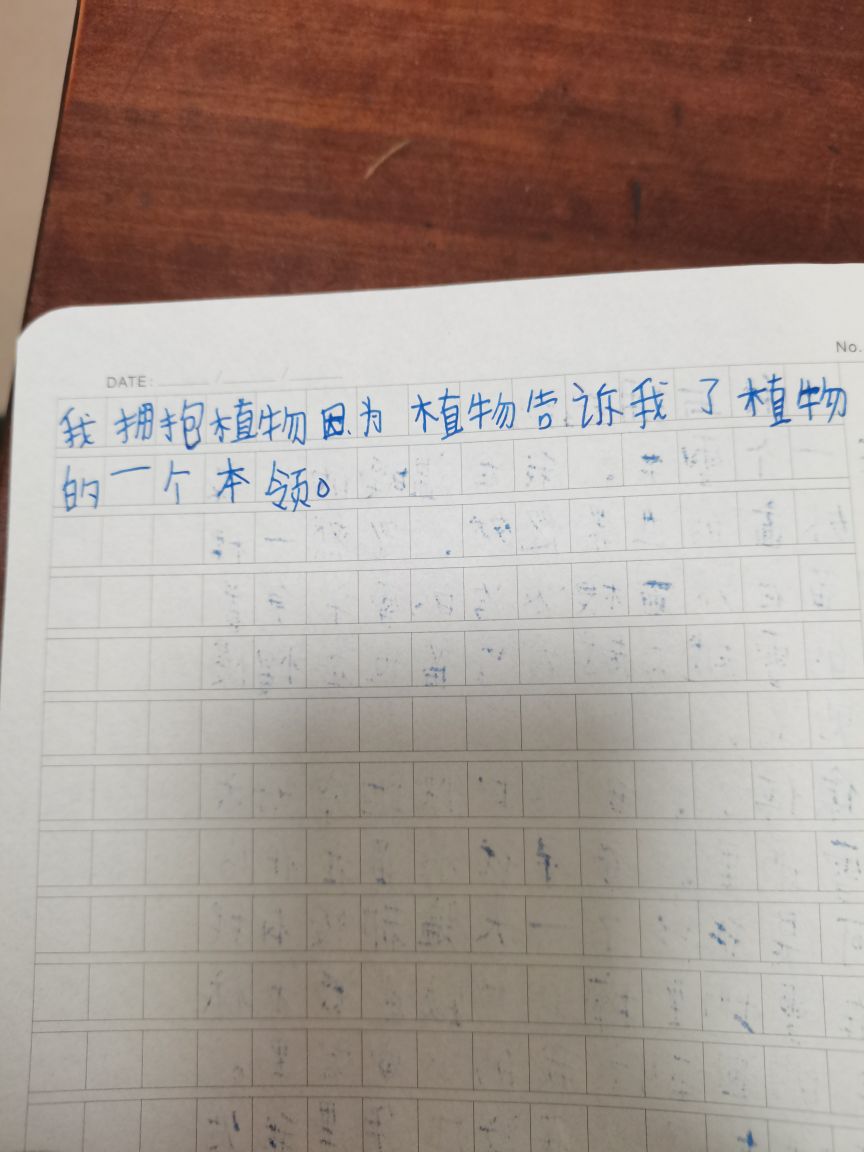 No.
DATE: / /
我拥抱植物因为植物告诉我了植物
的一个本领。